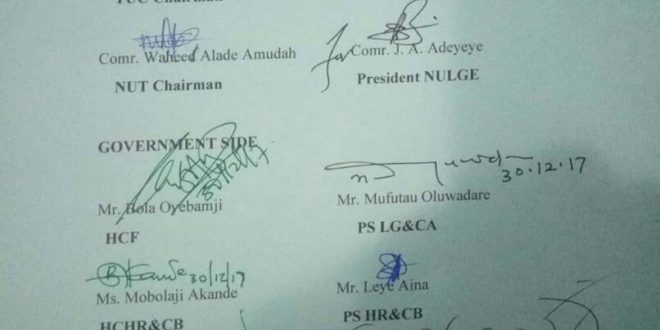 TUC Chairman
Comr. Waheed Alade Amudah
Comr. J. A. Adeyeye
NUT Chairman
President NULGE
GOVERNMENT SIDE
30/12/17
30.12.17
Mr. Bola Oyebamji
Mr. Mufutau Oluwadare
HCF
PS LG&CA
30/12/17
Ms. Mobolaji Akande
Mr. Leye Aina
HCHR&CB
PS HR&CB